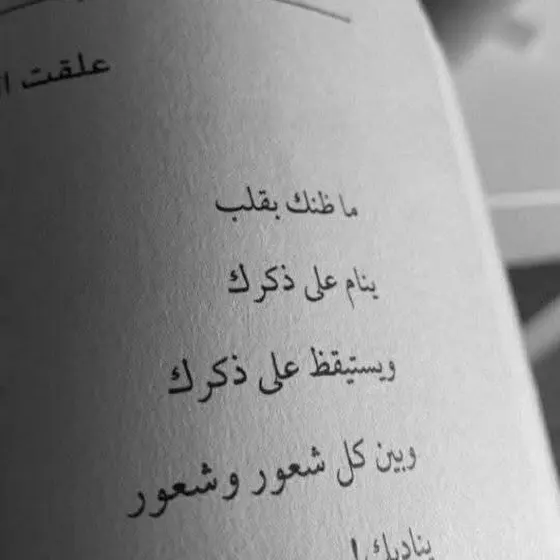 علقت
ما ظنك بقلب
ينام على ذكرك
ويستيقظ على ذكرك
وبين كل شعور وشعور
يناديك!